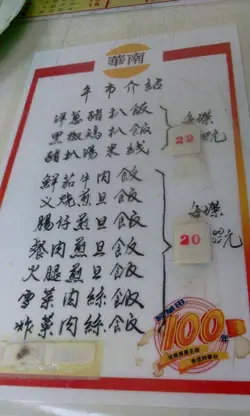 華南
午市介紹
洋葱豬扒飯
黑椒鸡扒飯
豬扒湯米线
每碟
22元
鮮茄牛肉飯
义燒煎旦飯
腸仔煎旦飯
餐肉煎旦飯
火腿煎旦飯
雪菜肉絲飯
炸菜肉絲飯
每碟
20元
100年